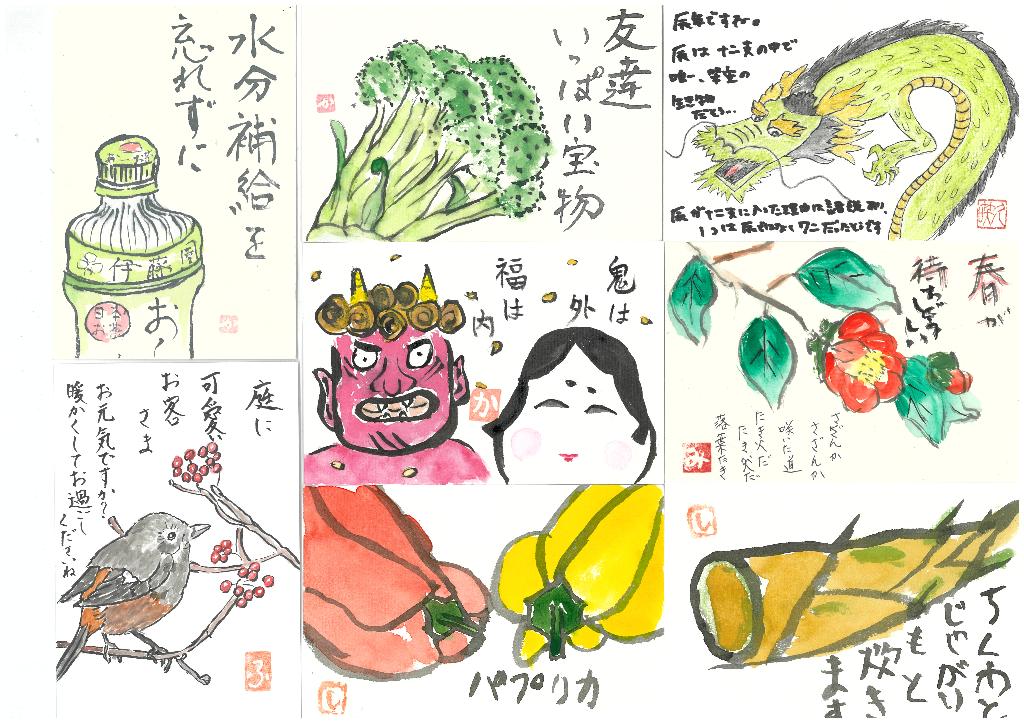 水分補給を
忘れずに
伊藤園
お〜
日本
お茶
友達
いっぱい宝物
か
辰年ですね。
辰は十二支の中で
唯一、架空の
生き物
だそう…
辰が十二支に入った理由は諸説あり、
1つは辰ではなくワニだったいです
鬼は
外
福は
内
か
春が
待ちどおしい
さざんか
さざんか
咲いた道
たき火だ
たき火だ
落葉たき
み
庭に
可愛い
お客
さま
お元気ですか?
暖かくしてお過ごし
くださいね
ふ
パプリカ
し
ちくわと
じゃがい
もと
炊き
ます
し